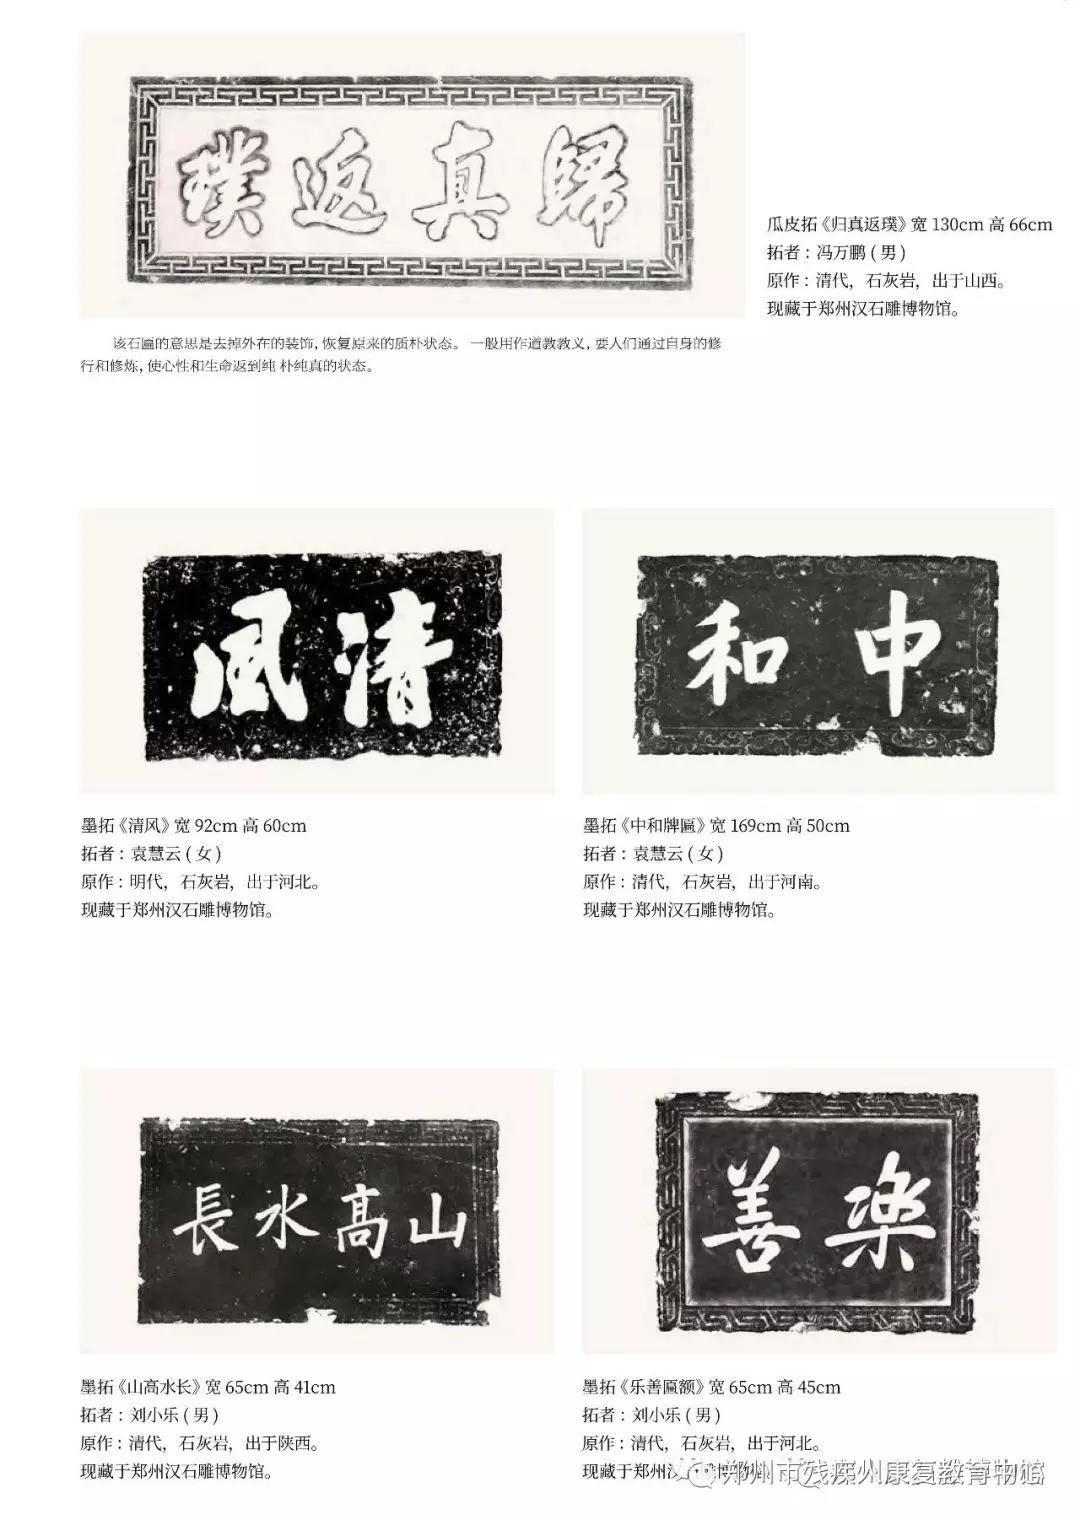 璞返真歸
瓜皮拓《归真返璞》宽 130cm 高 66cm
拓者：冯万鹏 ( 男 )
原作：清代，石灰岩，出于山西。
现藏于郑州汉石雕博物馆。
该石匾的意思是去掉外在的装饰, 恢复原来的质朴状态。 一般用作道教教义, 要人们通过自身的修
行和修炼, 使心性和生命返到纯 朴纯真的状态。
風清
和中
墨拓《清风》宽 92cm 高 60cm
拓者：袁慧云 ( 女 )
原作：明代，石灰岩，出于河北。
现藏于郑州汉石雕博物馆。
墨拓《中和牌匾》宽 169cm 高 50cm
拓者：袁慧云 ( 女 )
原作：清代，石灰岩，出于河南。
现藏于郑州汉石雕博物馆。
長水高山
善樂
墨拓《山高水长》宽 65cm 高 41cm
拓者：刘小乐 ( 男 )
原作：清代，石灰岩，出于陕西。
现藏于郑州汉石雕博物馆。
墨拓《乐善匾额》宽 65cm 高 45cm
拓者：刘小乐 ( 男 )
原作：清代，石灰岩，出于河北。
现藏于郑州汉石雕博物馆